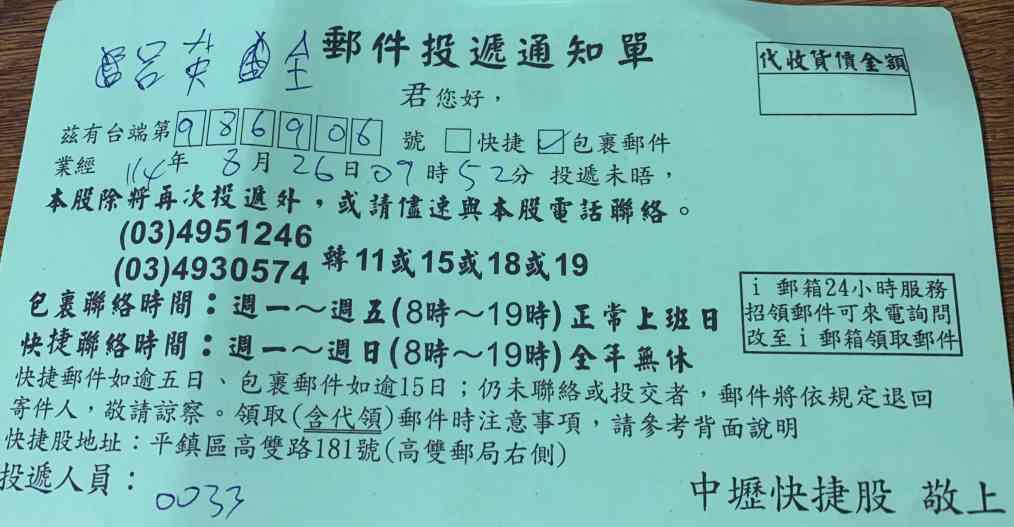 呂英全 郵件投遞通知單
代收貨價金額
君您好，
茲有台端第986906號 □快捷 ☑包裹郵件
業經114年8月26日09時52分 投遞未晤，
本股除將再次投遞外，或請儘速與本股電話聯絡。
(03)4951246
(03)4930574 轉11或15或18或19
包裹聯絡時間：週一～週五(8時～19時)正常上班日
快捷聯絡時間：週一～週日(8時～19時)全年無休
i 郵箱24小時服務
招領郵件可來電詢問
改至 i 郵箱領取郵件
快捷郵件如逾五日、包裹郵件如逾15日；仍未聯絡或投交者，郵件將依規定退回
寄件人，敬請諒察。領取(含代領)郵件時注意事項，請參考背面說明
快捷股地址：平鎮區高雙路181號(高雙郵局右側)
投遞人員：0033
中壢快捷股 敬上